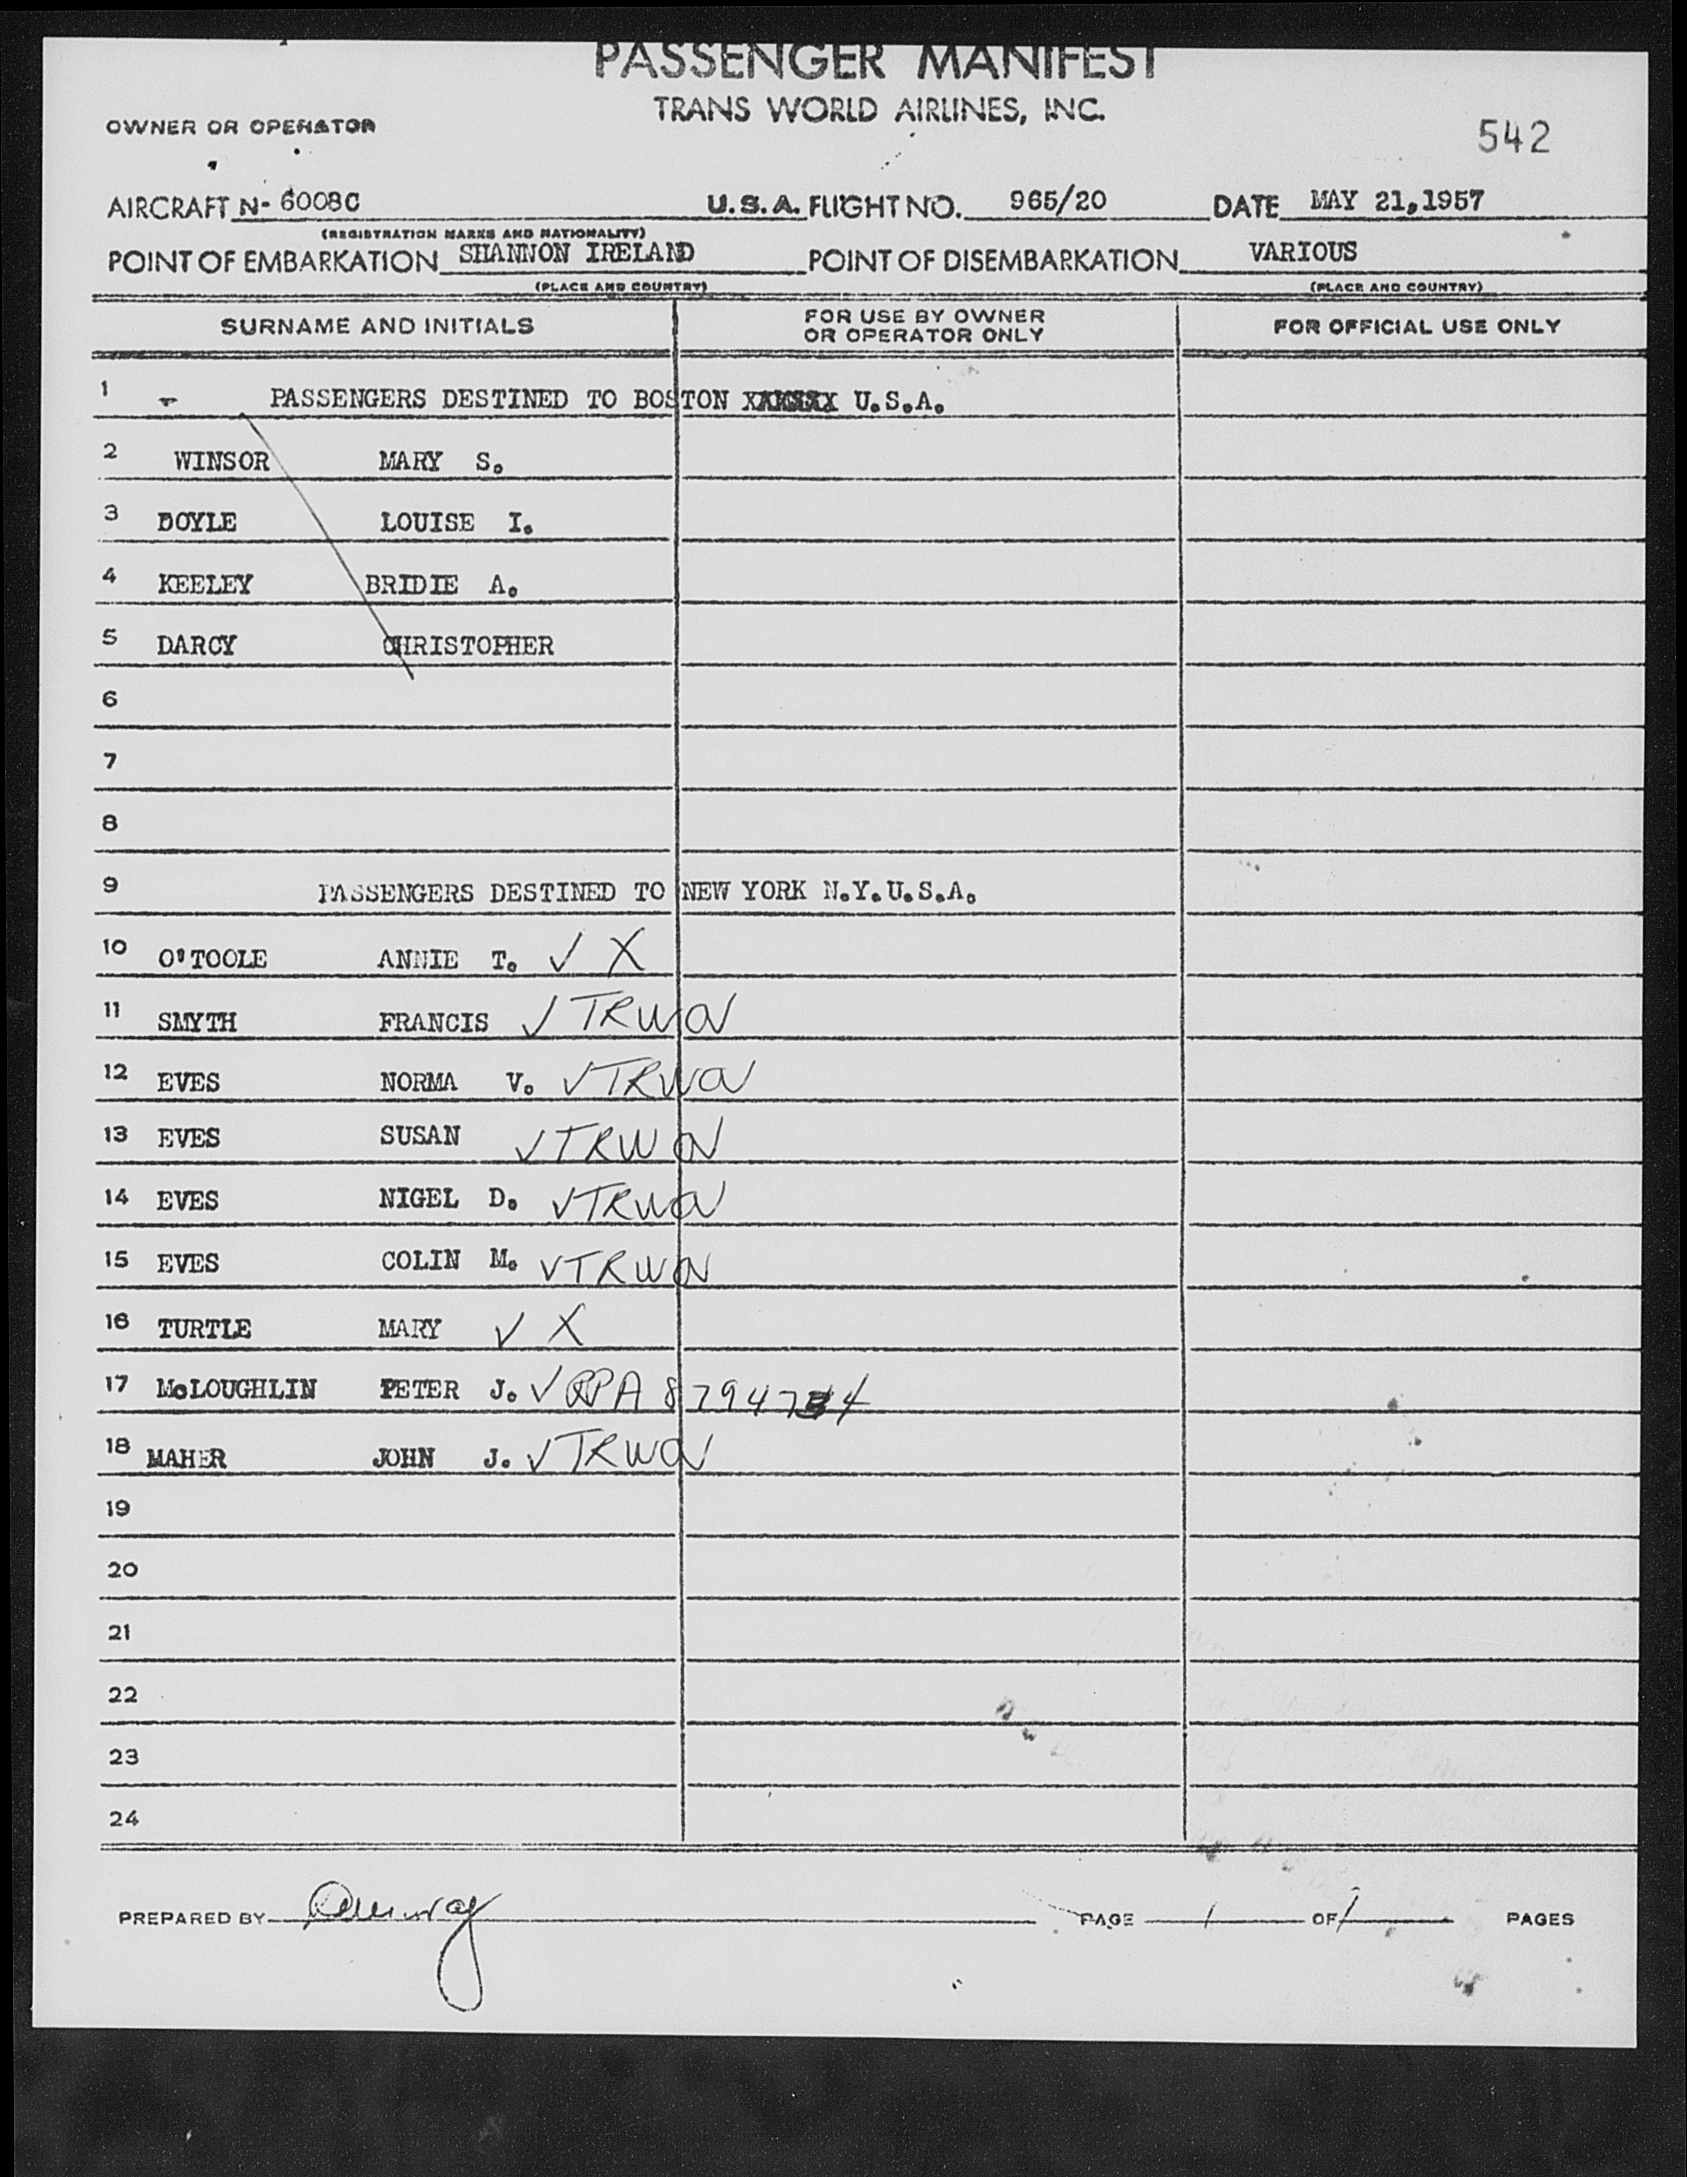 PASSENGER MANIFEST
TRANS WORLD AIRLINES, INC.
OWNER OR OPERATOR
542
AIRCRAFT N- 6008C U.S.A. FLIGHT NO. 965/20 DATE MAY 21,1957
(REGISTRATION MARKS AND NATIONALITY)
POINT OF EMBARKATION SHANNON IRELAND POINT OF DISEMBARKATION VARIOUS
(PLACE AND COUNTRY) (PLACE AND COUNTRY)
SURNAME AND INITIALS FOR USE BY OWNER OR OPERATOR ONLY FOR OFFICIAL USE ONLY
1 - PASSENGERS DESTINED TO BOSTON U.S.A.
2 WINSOR MARY S.
3 DOYLE LOUISE I.
4 KEELEY BRIDIE A.
5 DARCY CHRISTOPHER
6
7
8
9 PASSENGERS DESTINED TO NEW YORK N.Y.U.S.A.
10 O'TOOLE ANNIE T. ✓ X
11 SMYTH FRANCIS ✓ TRWOV
12 EVES NORMA V. ✓ TRWOV
13 EVES SUSAN ✓ TRWOV
14 EVES NIGEL D. ✓ TRWOV
15 EVES COLIN M. ✓ TRWOV
16 TURTLE MARY ✓ X
17 McLOUGHLIN PETER J. ✓ RPA
18 MAHER JOHN J. ✓ TRWOV
19
20
21
22
23
24
PREPARED BY PAGE 1 OF 1 PAGES